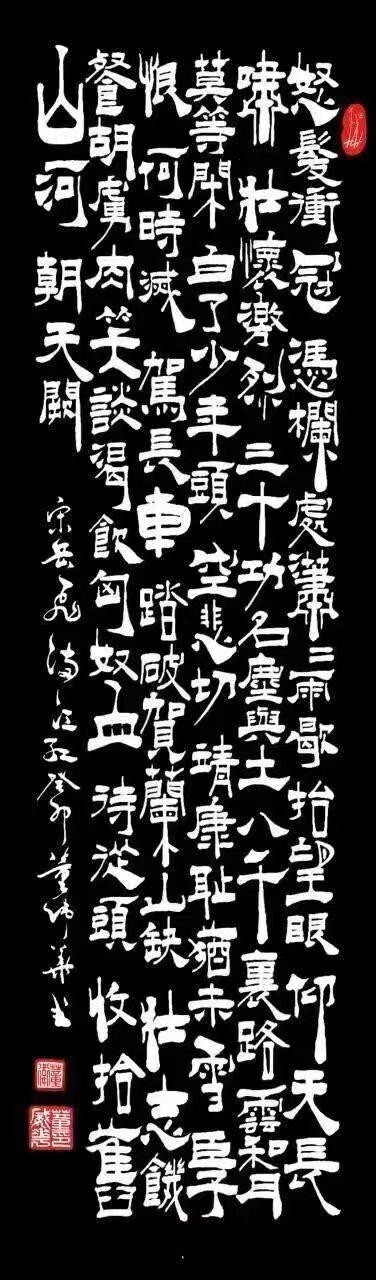 怒髮衝冠 憑欄處瀟〻雨歇抬望眼仰天長
嘯 壯懷激烈 三十功名塵與土八千裏路雲和月
莫等閑白了少年頭 空悲切 靖康耻猶未雪 臣子
恨 何時滅 駕長車 踏破賀蘭山缺 壯志饑
餐胡虜肉笑談渴飲匈奴血 待從頭 收拾舊
山河 朝天闕
宋岳飛滿江紅癸卯董衛華書